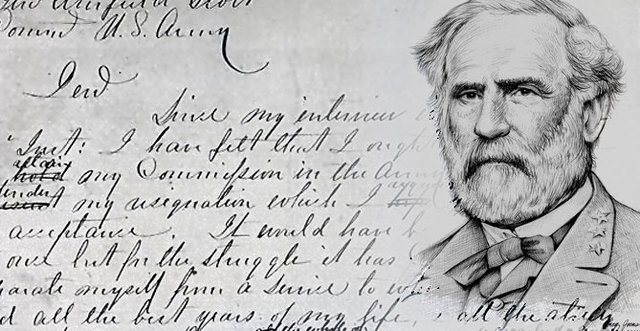 Winfield Scott
U.S. Army
Genl
Since my interview
Inst: I have felt that I ought
my Commission in the Army
my resignation which I
acceptance. It would have b
once but for the struggle it has
parate myself from a service to
d all the best years of my life, & all the